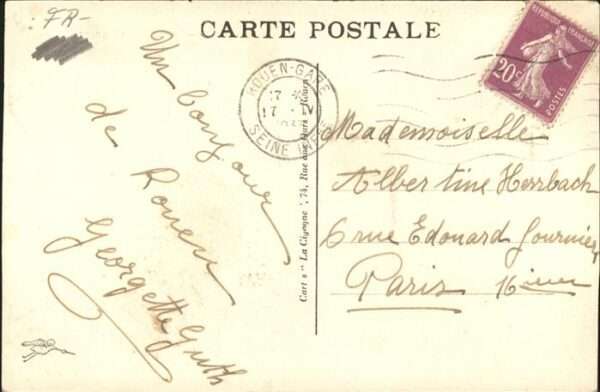 FR-
CARTE POSTALE
RÉPUBLIQUE FRANÇAISE
20c
POSTES
ROUEN-GARE
17
SEINE INFRE
Un bonjour
de Rouen
Georgette Guth
Cart "La Cigogne", 74, Rue aux Ours - Rouen
Mademoiselle
Albertine Herrbach
6 rue Edouard Fournier
Paris 16ième